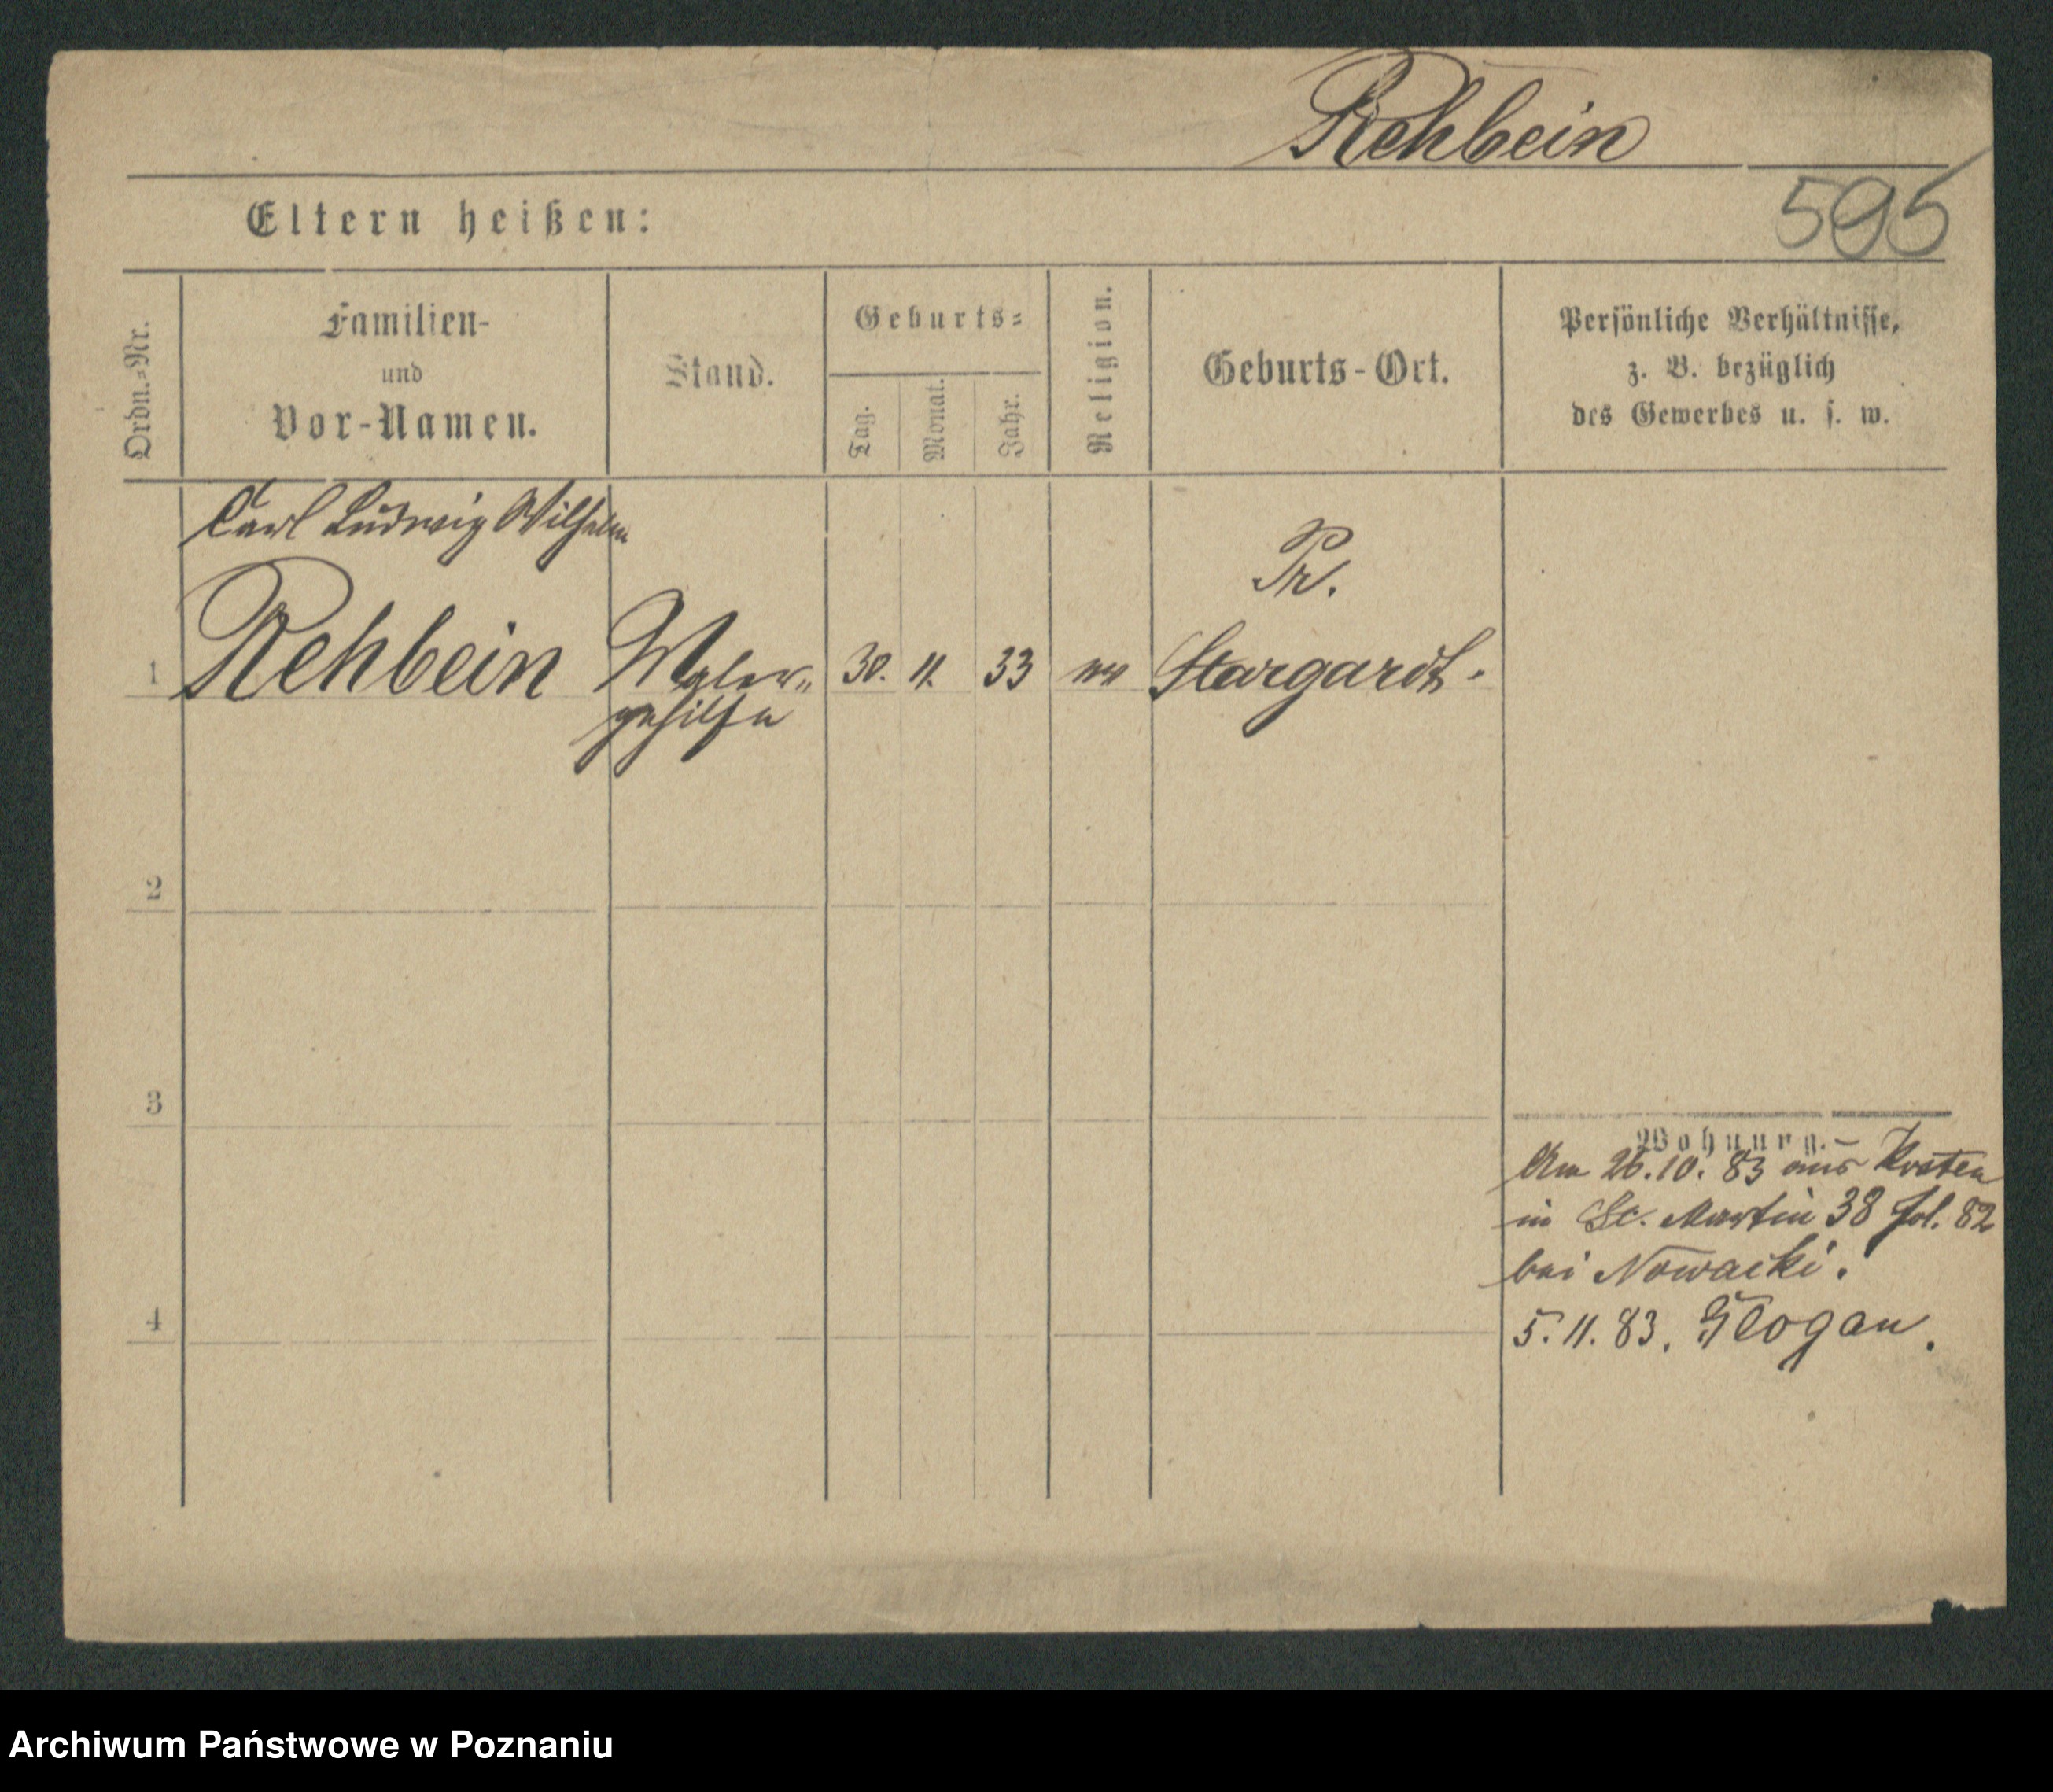 Rehbein
595
Eltern heißen:
Ordn.=Nr.
Familien-
und
Vor-Namen.
Stand.
Geburts=
Tag.
Monat.
Jahr.
Religion.
Geburts-Ort.
Persönliche Verhältnisse,
z. B. bezüglich
des Gewerbes u. s. w.
Carl Ludwig Wilhelm
Pr.
1 Rehbein Maler= 30. 11. 33 Stargardt.
gehilfe
2
3
Wohnung.
Am 26.10. 83 aus Kosten
in St. Martin 38 fol. 82
bei Nowacki.
4
5. 11. 83. Glogau.
Archiwum Państwowe w Poznaniu